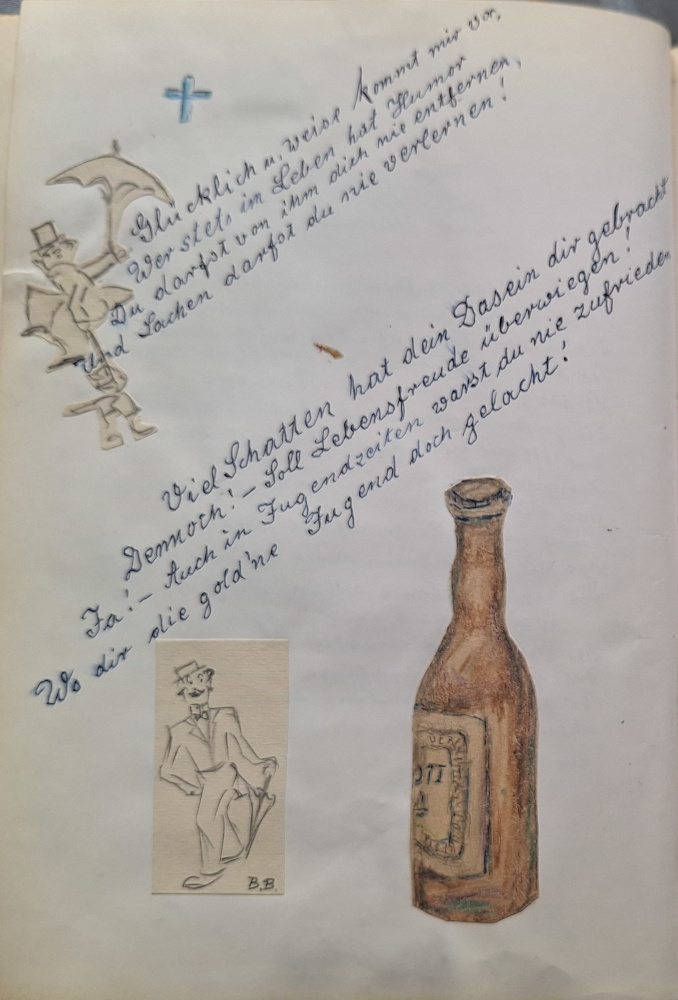 Glücklich u. weise kommt mir vor,
Wer stets im Leben hat Humor
Du darfst von ihm dich nie entfernen,
Und Lachen darfst du nie verlernen!
Viel Schatten hat dein Dasein dir gebracht
Dennoch! – Soll Lebensfreude überwiegen!
Ja! – Auch in Jugendzeiten warst du nie zufrieden
Wo dir die gold'ne Jugend doch gelacht!
B.B.